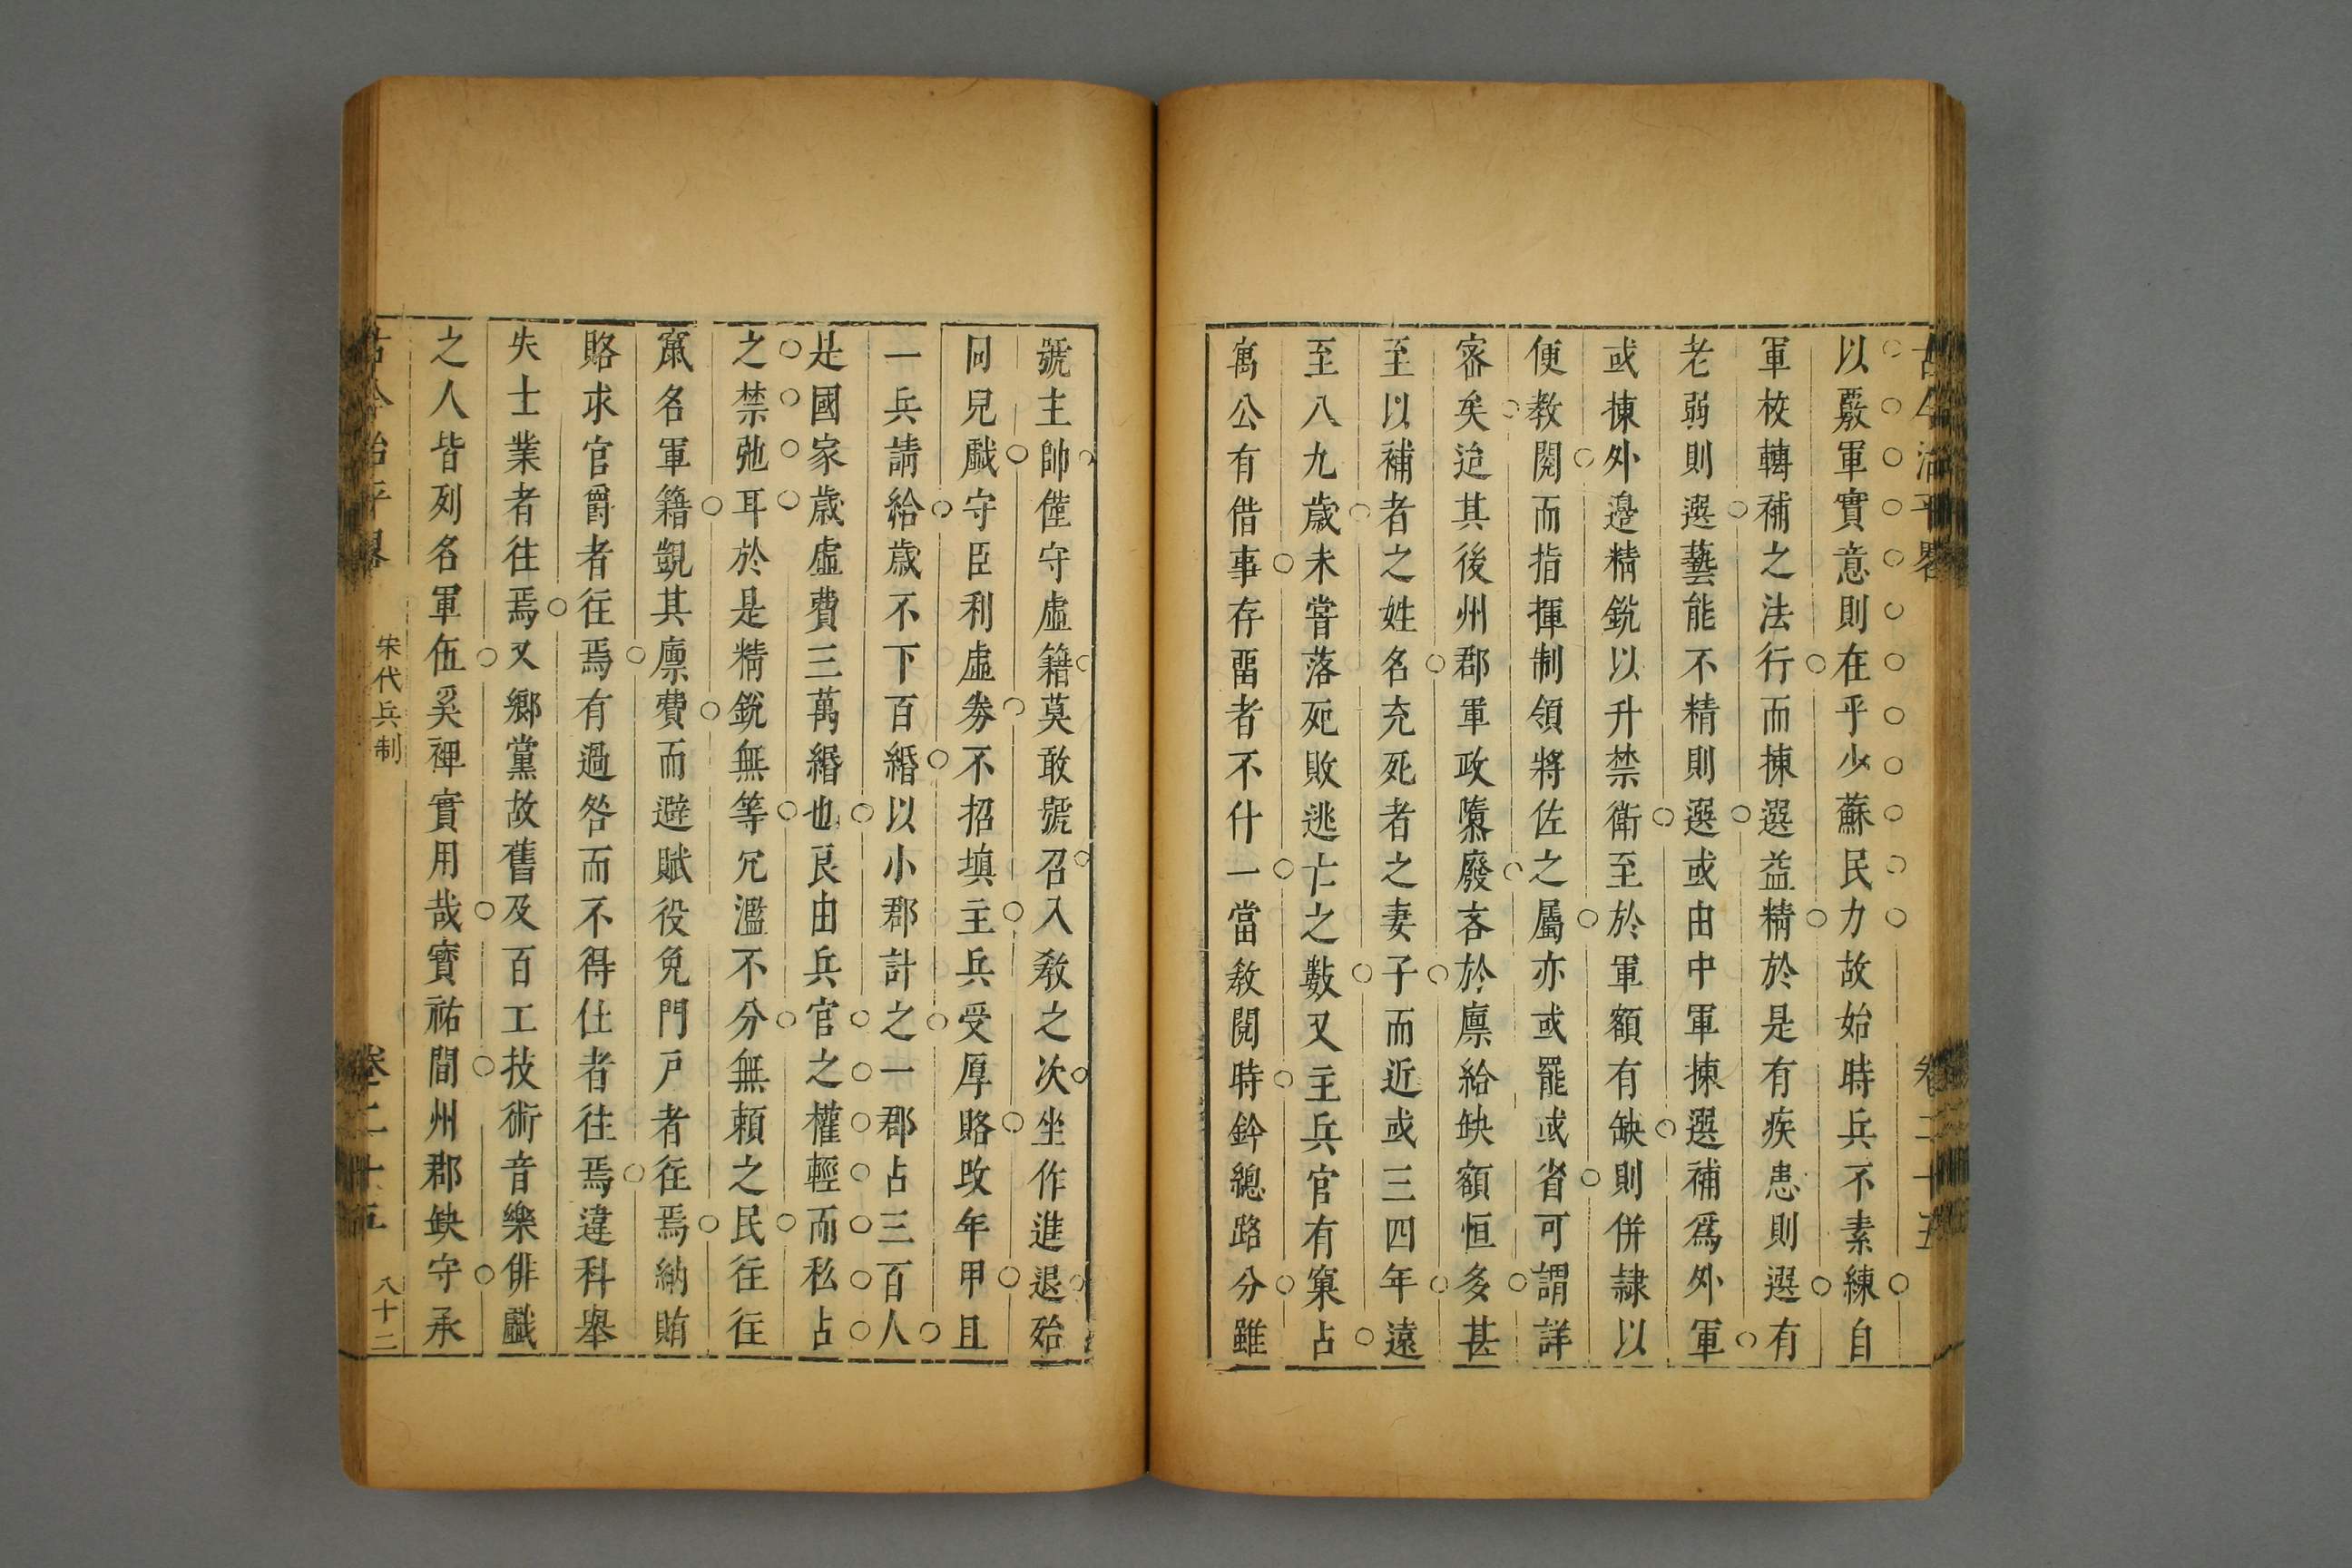 古今治平畧
卷二十五
以覈軍實意則在乎少蘇民力故始時兵不素練自
軍校轉補之法行而揀選益精於是有疾患則選有
老弱則選藝能不精則選或由中軍揀選補爲外軍
或揀外邊精銳以升禁衛至於軍額有缺則併隸以
便教閱而指揮制領將佐之屬亦或罷或省可謂詳
宻矣迨其後州郡軍政隳廢吝於廪給缺額恒多甚
至以補者之姓名充死者之妻子而近或三四年遠
至八九歲未嘗落死敗逃亡之數又主兵官有窠占
寓公有借事存畱者不什一當教閱時鈐總路分雖
號主帥僅守虛籍莫敢號召入敎之次坐作進退殆
同兒戱守臣利虛劵不招填主兵受厚賂改年甲且
一兵請給歲不下百緡以小郡計之一郡占三百人
是國家歲虛費三萬緡也良由兵官之權輕而私占
之禁弛耳於是精銳無等冗濫不分無頼之民往往
竄名軍籍覬其廪費而避賦役免門戸者往焉納賄
賂求官爵者往焉有過咎而不得仕者往焉違科舉
失士業者往焉又鄉黨故舊及百工技術音樂俳戱
之人皆列名軍伍奚禆實用哉寳祐間州郡缺守承
古今治平畧
宋代兵制
卷二十五
八十二